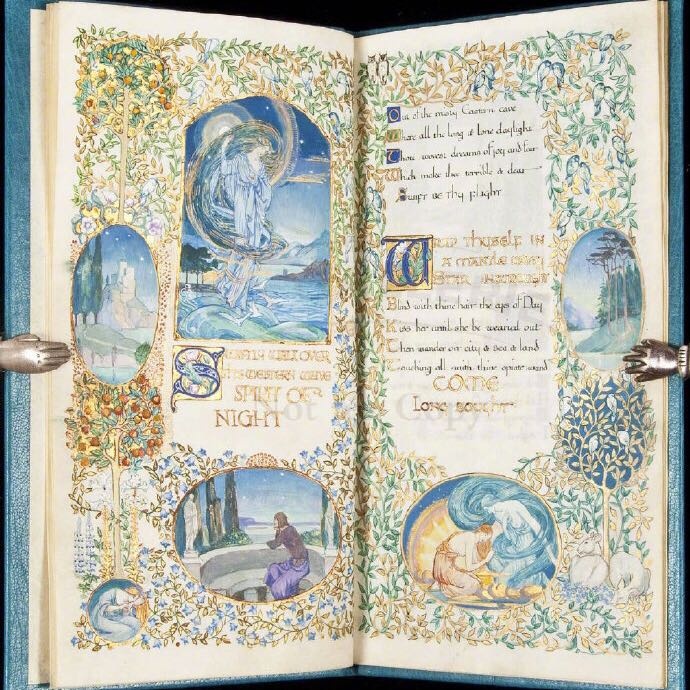 Swiftly walk over
the western wave
SPIRIT OF
NIGHT
Out of the misty Eastern cave
Where all the long & lone daylight
Thou wovest dreams of joy and fear
Which make thee terrible & dear
Swift be thy flight
WRAP THYSELF IN
A MANTLE GREY
STAR INWROUGHT
Blind with thine hair the eyes of Day
Kiss her until she be wearied out
Then wander o'er city & sea & land
Touching all with thine opiate wand
COME
Long sought
Not Copy